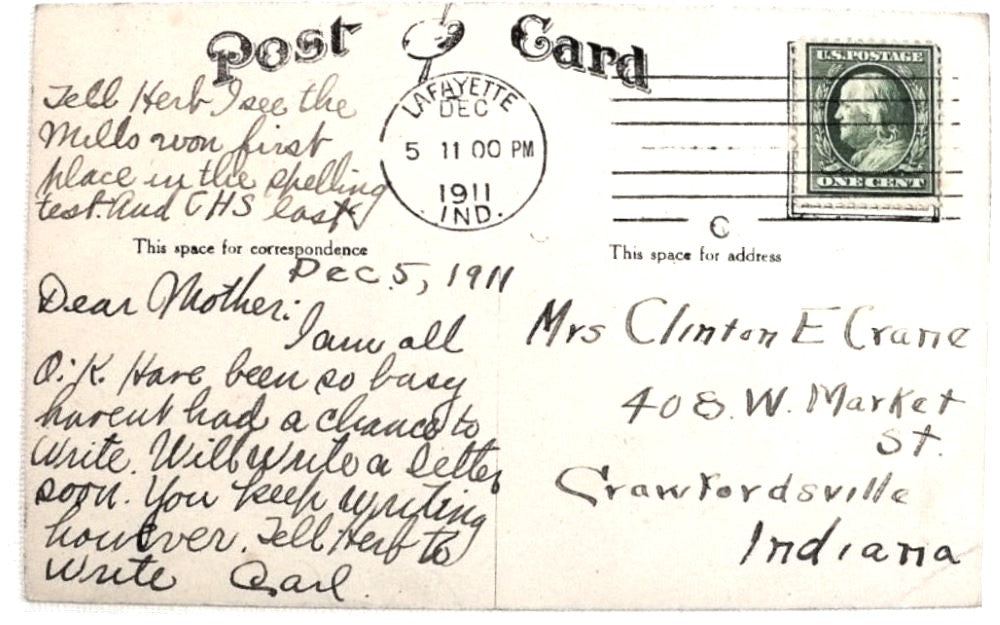 Post Card
U.S. POSTAGE
ONE CENT
LAFAYETTE
DEC
5 11 00 PM
1911
IND.
C
Tell Herb I see the
Mills won first
place in the spelling
test. And CHS last
This space for correspondence
This space for address
Dec. 5, 1911
Dear Mother:
I am all
O.K. Have been so busy
havent had a chance to
write. Will write a letter
soon. You keep writing
however. Tell Herb to
write Carl.
Mrs Clinton E Crane
408. W. Market
St.
Crawfordsville
Indiana